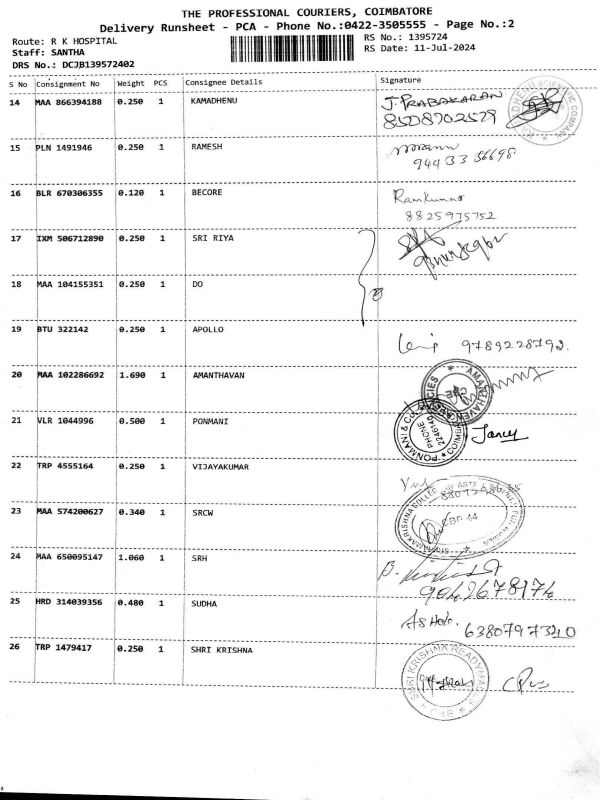 THE PROFESSIONAL COURIERS, COIMBATORE
Delivery Runsheet - PCA - Phone No.:0422-3505555 - Page No.:2
Route: R K HOSPITAL
Staff: SANTHA
DRS No.: DCJB139572402
RS No.: 1395724
RS Date: 11-Jul-2024
S No Consignment No Weight PCS Consignee Details Signature
14 MAA 866394188 0.250 1 KAMADHENU J. PRABAKARAN
8508902529
15 PLN 1491946 0.250 1 RAMESH
94433 56698
16 BLR 670306355 0.120 1 BECORE Ramkumar
8825975752
17 IXM 506712890 0.250 1 SRI RIYA
18 MAA 104155351 0.250 1 DO
19 BTU 322142 0.250 1 APOLLO 9789228792.
20 MAA 102286692 1.690 1 AMANTHAVAN
21 VLR 1044996 0.500 1 PONMANI Jancy
PONMANI & CO
PHONE
22 TRP 4555164 0.250 1 VIJAYAKUMAR
23 MAA 574200627 0.340 1 SRCW
24 MAA 650095147 1.060 1 SRH
9042678174
25 HRD 314039356 0.480 1 SUDHA
6380797320
26 TRP 1479417 0.250 1 SHRI KRISHNA
SHRI KRISHNA READYMADES
CBE